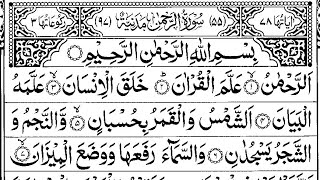 اٰيَاتُهَا ٧٨ (٥٥) سُوْرَةُ الرَّحْمٰنِ مَدَنِيَّةٌ (٩٧) رُكُوْعَاتُهَا ٣
بِسْمِ اللّٰهِ الرَّحْمٰنِ الرَّحِيْمِ
اَلرَّحْمٰنُ ۙ١ عَلَّمَ الْقُرْاٰنَ ؕ٢ خَلَقَ الْاِنْسَانَ ۙ٣ عَلَّمَهُ
الْبَيَانَ ٤ اَلشَّمْسُ وَالْقَمَرُ بِحُسْبَانٍ ۪٥ وَّالنَّجْمُ وَ
الشَّجَرُ يَسْجُدٰنِ ٦ وَالسَّمَآءَ رَفَعَهَا وَوَضَعَ الْمِيْزَانَ ۙ٧